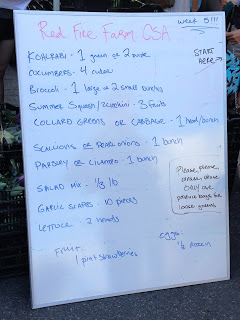 Red Fire Farm CSA
week 5!!!
START
HERE
KOHLRABI - 1 green or 2 purple
CUCUMBERS - 4 cukes
Broccoli - 1 large or 2 small bunches
SUMMER SQUASH / ZUCCHINI - 3 fruits
COLLARD GREENS OR CABBAGE - 1 head/bunch
SCALLIONS OR PEARL ONIONS - 1 bunch
PARSLEY OR CILANTRO - 1 bunch
SALAD MIX - 1/3 lb
GARLIC SCAPES - 10 pieces
LETTUCE - 2 heads
Please, please,
please, please
only use
produce bags for
loose greens
FRUIT:
1 pint strawberries
eggs:
1/2 dozen